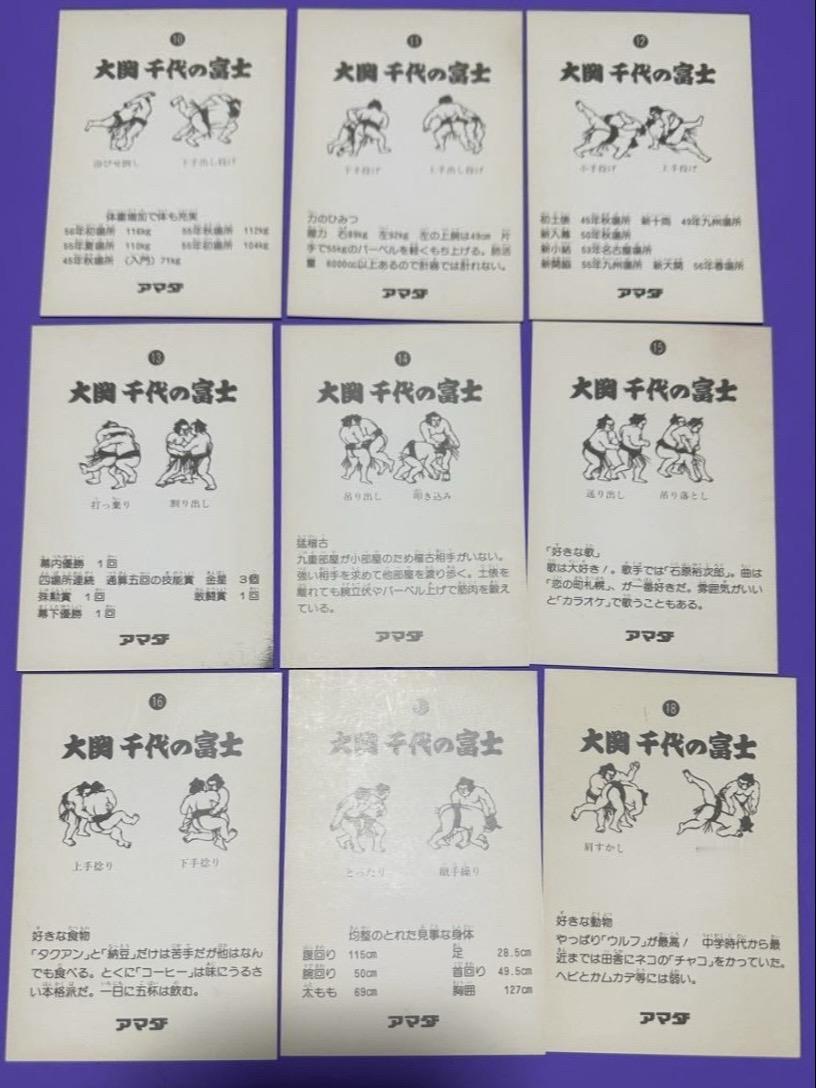 10
大関 千代の富士
浴びせ倒し 下手出し投げ
体重増加で体も充実
56年初場所 116kg 55年秋場所 112kg
55年夏場所 110kg 55年初場所 104kg
45年秋場所 (入門)71kg
アマダ
11
大関 千代の富士
下手投げ 上手出し投げ
力のひみつ
握力 右89kg 左92kg 左の上腕は49cm 片
手で55kgのバーベルを軽くもち上げる。肺活
量 6000cc以上あるので計器では計れない。
アマダ
12
大関 千代の富士
小手投げ 上手投げ
初土俵 45年秋場所 新十両 49年九州場所
新入幕 50年秋場所
新小結 53年名古屋場所
新関脇 55年九州場所 新大関 56年春場所
アマダ
13
大関 千代の富士
打っ棄り 割り出し
幕内優勝 1回
四場所連続 通算五回の技能賞 金星 3個
殊勲賞 1回 敢闘賞 1回
幕下優勝 1回
アマダ
14
大関 千代の富士
吊り出し 叩き込み
猛稽古
九重部屋が小部屋のため稽古相手がいない。
強い相手を求めて他部屋を渡り歩く。土俵を
離れても腕立伏やバーベル上げで筋肉を鍛え
ている。
アマダ
15
大関 千代の富士
送り出し 吊り落とし
「好きな歌」
歌は大好き!。歌手では「石原裕次郎」。曲は
「恋の町札幌」、が一番好きだ。雰囲気がいい
と「カラオケ」で歌うこともある。
アマダ
16
大関 千代の富士
上手捻り 下手捻り
好きな食物
「タクアン」と「納豆」だけは苦手だが他はなん
でも食べる。とくに「コーヒー」は味にうるさ
い本格派だ。一日に五杯は飲む。
アマダ
大関 千代の富士
とったり 蹴手繰り
均整のとれた見事な身体
腹回り 115cm 足 28.5cm
腕回り 50cm 首回り 49.5cm
太もも 69cm 胸囲 127cm
アマダ
18
大関 千代の富士
肩すかし
好きな動物
やっぱり「ウルフ」が最高! 中学時代から最
近までは田舎にネコの「チャコ」をかっていた。
ヘビとかムカデ等には弱い。
アマダ